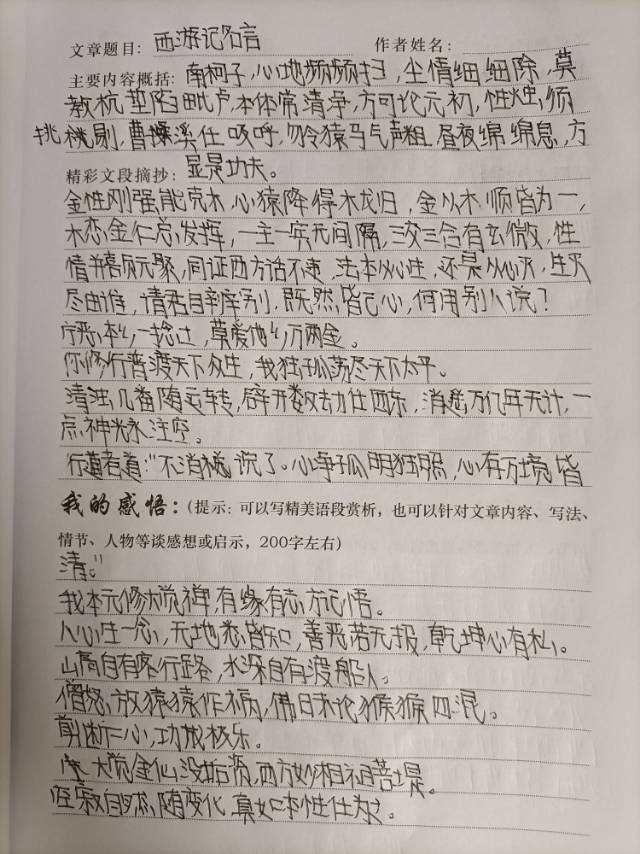 文章题目: 西游记名言 作者姓名:
主要内容概括: 南柯子,心地频频扫,尘情细细除,莫
教坑堑陷毗卢,本体常清净,方可论元初,性烛须
挑剔,曹溪任吸呼,勿令猿马气声粗,昼夜绵绵息,方
显是功夫。
精彩文段摘抄:
金性刚强能克木,心猿降得木龙归,金从木顺皆为一,
木恋金仁总发挥,一主一宾无间隔,三交三合有玄微,性
情并喜贞元聚,同证西方话不违,生灭
尽由谁,请君自辨别,既然皆己心,何用别人说?
宁恋本乡一捻土,莫爱他乡万两金。
你修行普渡天下众生,我独孤荡尽天下太平。
清浊几番随运转,辟开数劫任西东,消愁万亿年无计,一
点神光永注空。
行者道:"不消 说了。心净孤明独照,心存万境皆
我的感悟:(提示: 可以写精美语段赏析, 也可以针对文章内容、写法、
情节、人物等谈感想或启示, 200字左右)
清。"
我本元修大觉禅,有缘有志方记悟。
人心生一念,天地悉皆知,善恶若无报,乾坤必有私。
山高自有客行路,水深自有渡船人。
剪断二心,功成极乐。
大觉金仙没垢姿,西方妙相祖菩提。
空寂自然随变化,真如本性任为之。